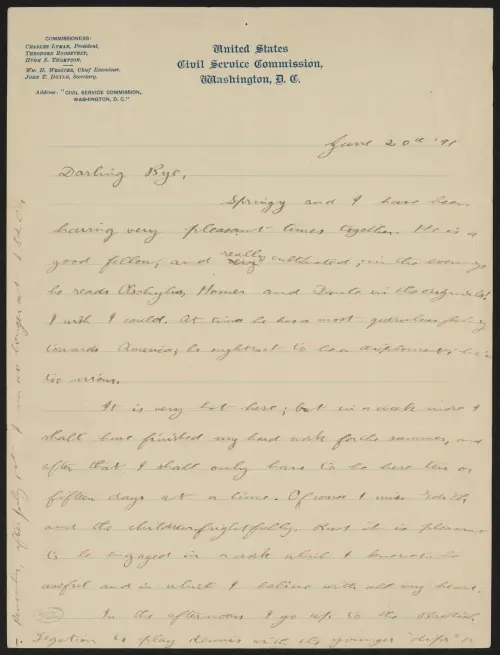 COMMISSIONERS:
CHARLES LYMAN, President,
THEODORE ROOSEVELT,
HUGH S. THOMPSON.
WM. H. WEBSTER, Chief Examiner.
JOHN T. DOYLE, Secretary.
Address: "CIVIL SERVICE COMMISSION,
WASHINGTON, D. C."
United States
Civil Service Commission,
Washington, D. C.
June 20th '91
Darling Bye,
Springy and I have been
having very pleasant times together. He is a
good fellow; and really cultivated; in the evenings
he reads Homer and Dante in the originals!
I wish I could. At times he has a most querulous feeling
towards America; he ought not to be a diplomat; he is
too serious.
It is very hot here; but in a week more I
shall have finished my hard work for the summer, and
after that I shall only have to be here ten or
fifteen days at a time. Of course I miss Edith
and the children frightfully. But it is pleasant
to be engaged in a work which I know to be
useful and in which I believe with all my heart.
In the afternoons I go up to the British
Legation to play tennis with the younger "chips" or
Remember, after July 1st I am no longer at